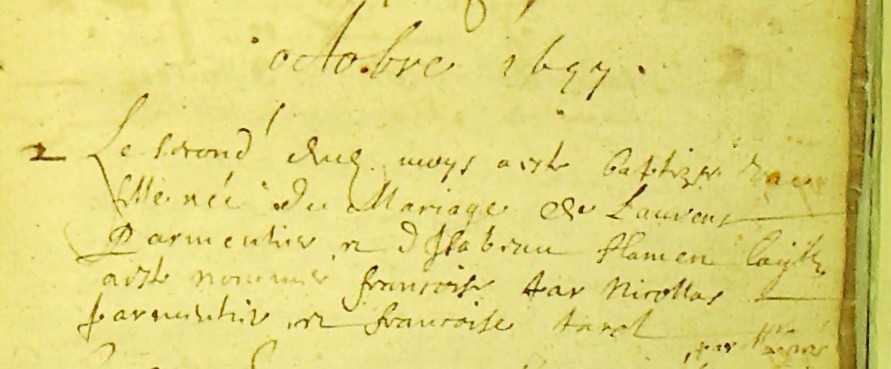 octobre 1697
2 Le second dud moys a este baptizee
fille née du Mariage de Laurens
Parmentier et d Isabeau flamen laq̃lle
a este nommee francoise par Nicollas
parmentier et francoise
par